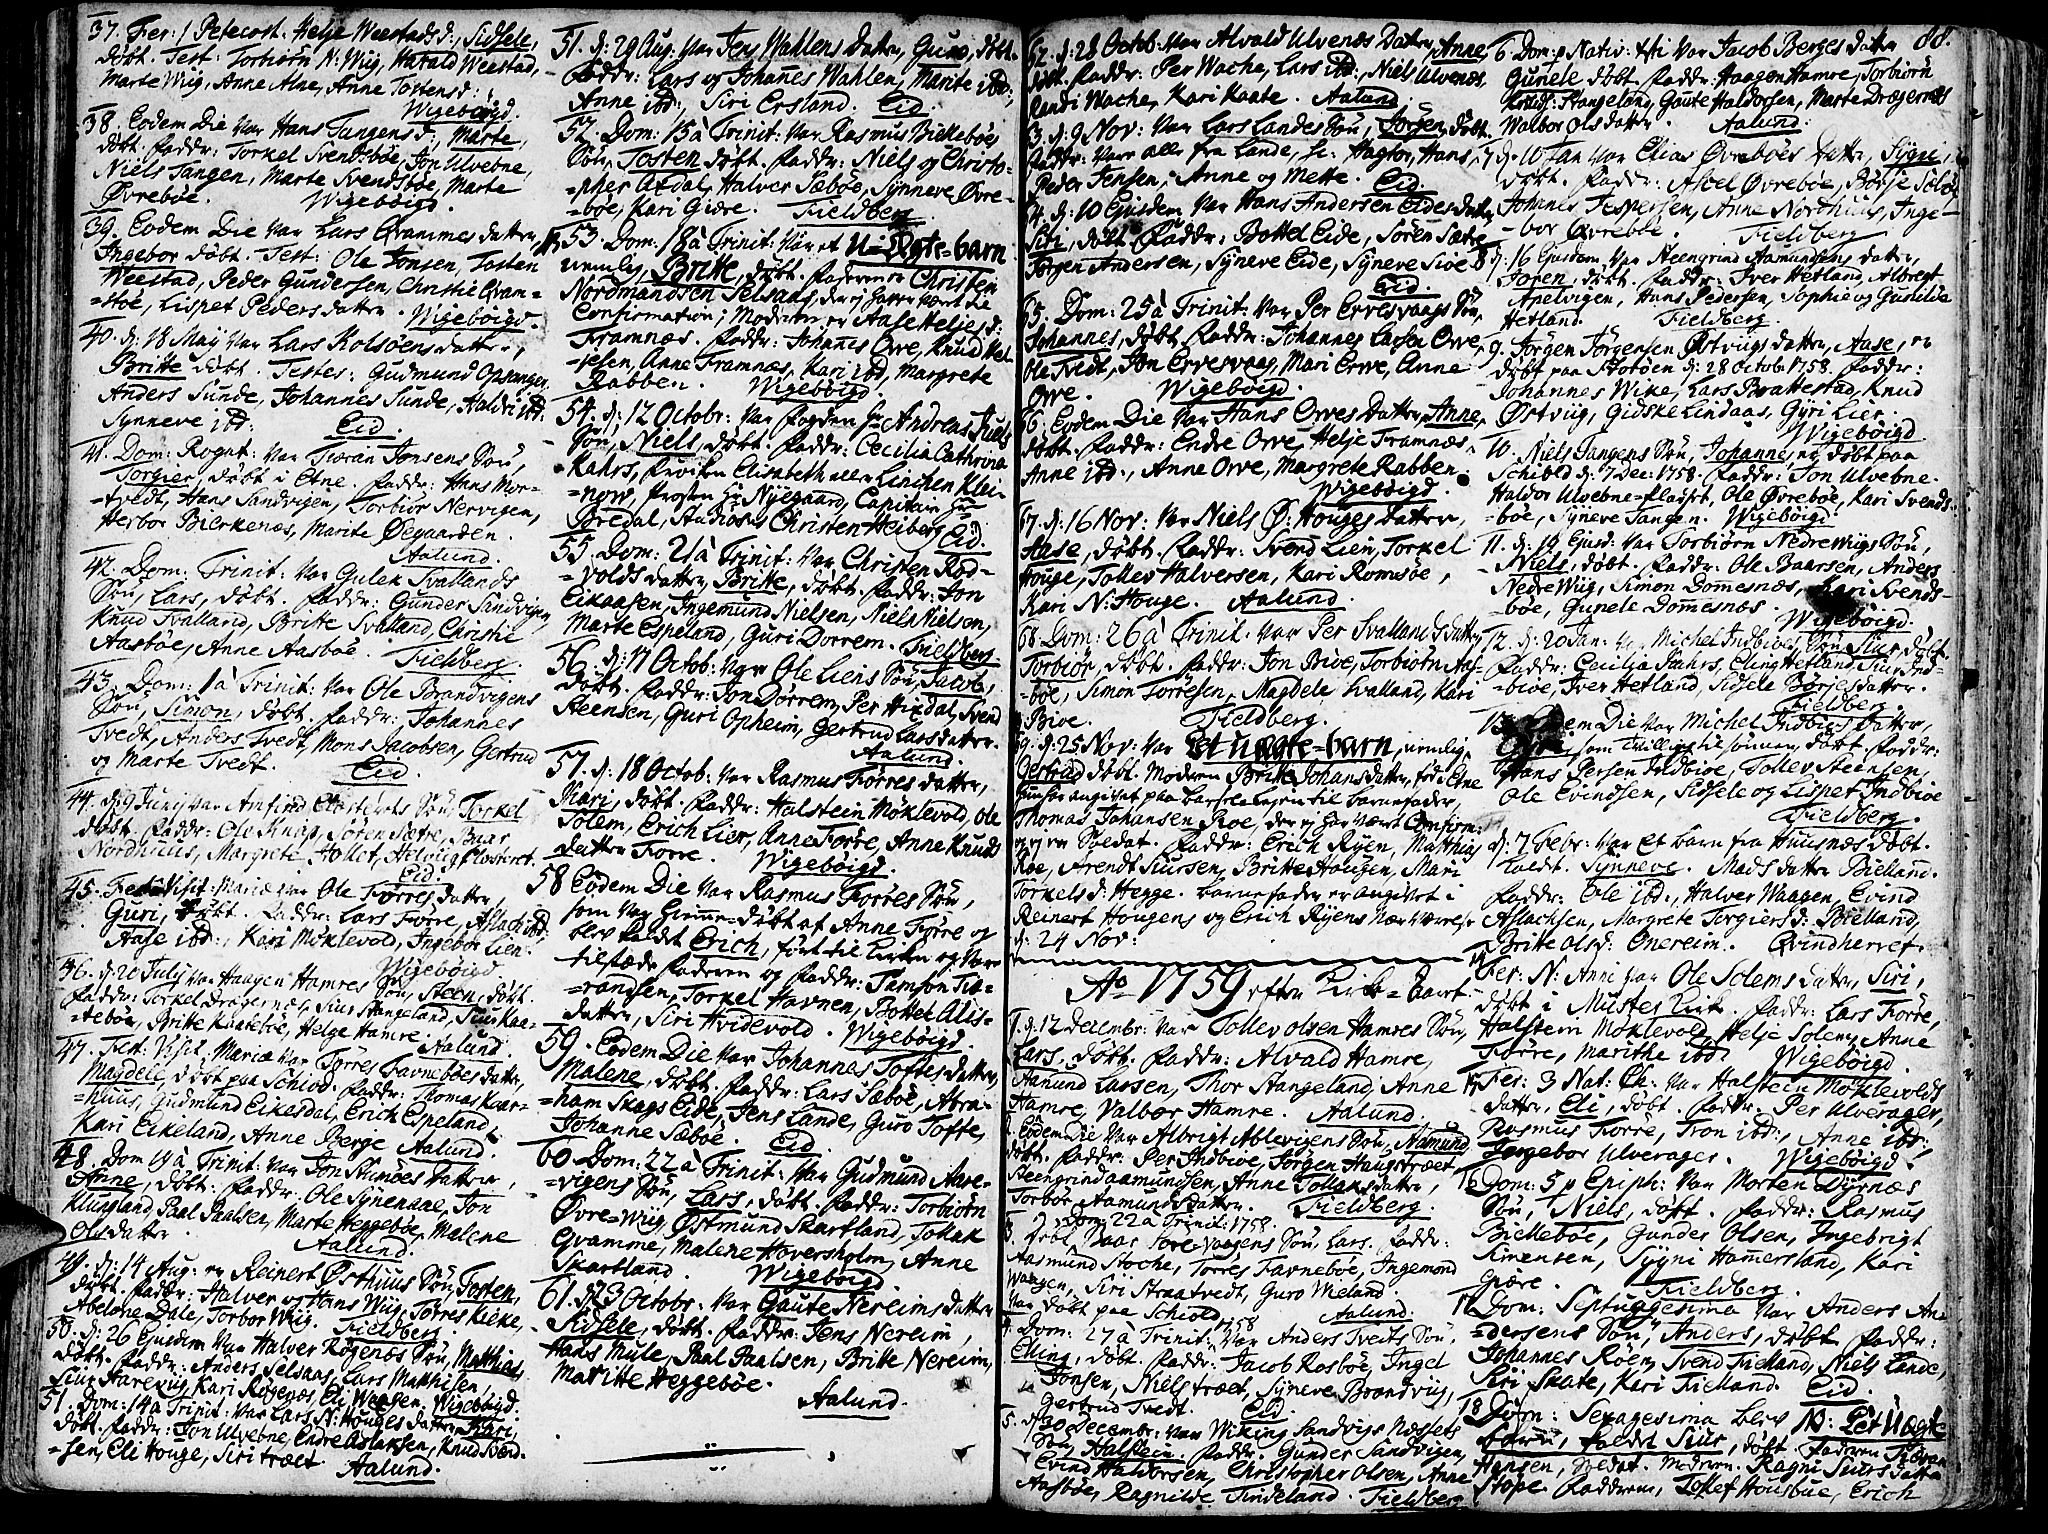 37. Fer: 1 Petecost. Helje Weestads d:, Sidsele,
döbt. Test: Torbiörn N: Wiig, Harald Weestad,
Marte Wiig, Anne Alne, Anne Tostens d:
Wigebøigd.
38. Eodem Die var Hans Tangens d:, Marte,
döbt. Faddr: Torkel Svendsböe, Jon Ulvebne,
Niels Tangen, Marte Svendsböe, Marte
Øvreböe. Wigebøigd.
39. Eodem Die var Lars Qvammes datter,
Ingebor döbt. Test: Ole Jonsen, Tosten
Weestad, Peder Gundersen, Christie Qvam=
=stöe, Lispet Peders datter. Wigebøigd.
40. d: 18 May var Lars Kolsöens datter,
Britte döbt. Testes: Gudmund Opsanger,
Anders Sunde, Johannes Sunde, ibd:
Synneve ibd: Eid.
41. Dom: Rogat: var Tiøran Jonsens Sön,
Torgier, döbt i Etne. Faddr: Hans Mor=
=tvedt, Hans Sandvigen, Torbiör Nervigen,
Herbor Bierkenæs, Marite Øegaarden.
Aalund.
42. Dom: Trinit: var Gulek Svallands
Sön, Lars, döbt. Faddr: Gunder Sandvigen,
Knud Svalland, Britte Svalland, Christie
Aasböe, Anne Aasböe. Fieldberg.
43. Dom: 1 à Trinit: var Ole Brandvigens
Sön, Simon, döbt. Faddr: Johannes
Tvedt, Anders Tvedt, Mons Jacobsen, Gertrud
og Marte Tvedt. Eid
44. d: 9 Junij var Anfind Sön, Torkel
döbt. Faddr: Ole Knap, Sören Sætre, Baar
Nordhuus, Margrete Hollet, Helvig Klosteret.
Eid.
45. Fest: Visit: Mariæ var Ole Førres datter,
Guri, döbt. Faddr: Lars Førre, Aslach ibd,
Aase ibd:, Kari Möklevold, Ingebor Lien.
Wigebøigd
46. d: 20 July var Haagen Hamres Sön, Steen, döbt.
Faddr: Torkel Drægernæs, Siur Stangeland, Siur Kaa=
=teböe, Britte Kaateböe, Helge Hamre. Aalund.
47. Fest: Visit: Mariæ var Torres Favneböes datter,
Magdele, döbt paa Schiod: Faddr: Thomas Kvar=
=huus, Gudmund Eikesdal, Erich Espeland,
Kari Eikeland, Anne Berge Aalund.
48. Dom 10 à Trinit: var Jon Stumöes datter,
Anne, döbt: Faddr: Ole Synenaae, Jon
Klungland, Paal Paalsen, Marte Heggeböe, Malene
Olsdatter. Aalund.
49. d: 14 Aug: er Reinert Østhuus Sön, Tosten,
döbt. Faddr: Halver og Hans Wiig, Torres Kirke,
Abelone Dale, Torbor Wiig. Fieldberg.
50. d: 26 Ejusdem var Halver Røgenæs Sön, Matthias,
döbt. Faddr: Anders Selsaas, Lars Matthisen,
Siur Aarevig, Kari Røgenæs, Eli Wessen. Wigebøigd.
51. Dom: 14 à Trinit: var Lars N: Houges datter Kari,
döbt. Faddr: Jon Ulvebne, Endre Aslaksen, Knud Svend=
=sen, Eli Houge, Siri træet. Aalund.
51. d: 29 Aug: var Jens Wahlens datter, Guro, döbt.
Faddr: Lars og Johannes Wahlen, Marite ibd:,
Anne ibd:, Siri Ersland. Eid.
52. Dom: 15 à Trinit: var Rasmus Bickeböes
Sön, Tosten döbt. Faddr: Niels og Christo=
=pher Axdal, Halver Sæböe, Synneve Øvre=
=böe, Kari Giøre. Fieldberg
53. Dom: 18 à Trinit: var et U=Ægte=barn
nemlig Britte, döbt. Faderen er Christen
Nordmandsen Selsaas, der ej haver været til
Confirmation; Moderen er Aase Heljes d:
Framnæs. Faddr: Johannes Orre, Knud Hel=
=jesen, Anne Framnæs, Kari ibd, Margrete
Rabben. Wigebøigd.
54. d: 12 Octobr: var Fogden Hr Andreas Juels
Sön, Niels, döbt. Faddr: Cecilia Cathrina
Kahrs, Frøiken Elisabeth Linchen Klei=
=now, Prosten Hr Nyegaard, Capitain Hr
Bredal, Studiosus Christen Heiberg Eid.
55. Dom: 21 à Trinit: var Christen Rod=
=volds datter, Britte, döbt. Faddr: Jon
Eikaasen, Ingemund Nielsen, Niels Nielsen,
Marte Espeland, Guri Dorrem. Fieldberg
56. d: 17 Octob: var Ole Liens Sön, Jacob,
döbt. Faddr: Jon Dorrem, Per Hixdal, Svend
Steensen, Guri Opheim, Gertrud Larsdatter.
Aalund.
57. d: 18 Octob: var Rasmus Førres datter,
Kari, döbt. Faddr: Halstein Möklevold, Ole
Solem, Erich Lier, Anne Førre, Anne Knuds
datter Førre. Wigebøigd.
58 Eodem Die var Rasmus Førres Sön,
som var hiemme=döbt af Anne Førre og
blev kaldet Erich, fört til Kirken og vare
tilstæde Faderen og Faddr: Samson Tiø=
=ransen, Torkel Havnen, Bottel Aslis=
datter, Siri Hvidevold. Wigebøigd.
59. Eodem Die var Johannes Toftes datter,
Malene, döbt. Faddr: Lars Sæböe, Abra=
=ham Skags Eide, Jens Lande, Guro Tofte,
Johanne Sæböe. Eid.
60. Dom: 22 à Trinit: var Gudmund Aare=
=vigens Sön, Lars, döbt. Faddr: Torbiörn
Øvre=Wiig, Østmund Skartland, Tollak
Qvamme, Malene Hoversholm, Anne
Skartland. Wigebøigd
61. d: 23 Octobr: var Gaute Nereims datter
Sidsele, döbt. Faddr: Jens Nereim,
Hans Mule, Paal Paalsen, Britte Nereim,
Maritte Heggeböe.
Aalund.
88.
62. d: 28 Octob: var Alvald Ulvenæs datter, Anne
döbt. Faddr: Per Wache, Lars ibd:, Niels Ulvenæs,
Randi Wache, Kari Kaate. Aalund.
63. d: 9 Nov: var Lars Landes Sön, Jörgen, döbt.
Faddr: vare alle fra Lande, sc: Hagtor, Hans,
Peder Jensen, Anne og Mette. Eid.
64. d: 10 Ejusdem var Hans Andersen Eides datter,
Siri, döbt. Faddr: Bottel Eide, Sören Sætre,
Jörgen Andersen, Syneve Eide, Syneve Sioe
Eid.
65. Dom: 25 à Trinit: var Per Ervesvaags Sön,
Johannes, döbt. Faddr: Johannes Larsen Orre,
Ole Tvedt, Jon Ervesvaag, Mari Orre, Anne
Orre. Wigebøigd.
66. Eodem Die var Hans Orres datter, Anne,
döbt. Faddr: Endre Orre, Helje Framnæs,
Anne ibd:, Anne Orre, Margrete Rabben.
Wigebøigd.
67. d: 16 Nov: var Niels Ø: Houges datter,
Aase, döbt. Faddr: Svend Lien, Torkel
Houge, Tollev Halversen, Kari Romsöe,
Kari N: Houge. Aalund.
68. Dom: 26 à Trinit: var Per Svallands datter,
Torbiör, döbt. Faddr: Jon Bioe, Torbiörn Aas=
=böe, Simon Torresen, Magdele Svalland, Kari
Bioe. Fieldberg.
69. d: 25 Nov: var Et uægte=barn, nemlig
Gertrud döbt. Moderen Britte Johans datter, föd i Etne
hun har angivet paa barsele=sengen til barnefader,
Thomas Johansen Roe, der ej har været Confirm:
og ej er Soldat. Faddr: Erich Rÿen, Matthias
Roe, Arendt Siursen, Britte Hougen, Mari
Torkels d: Hegge. barnefader er angivet i
Reinert Hougens og Erich Rÿens nærværelse
d: 24 Nov:
Ao 1759 efter Kirke=Aaret.
1. d: 12 Decembr: var Tollev Olsen Hamres Sön,
Lars döbt. Faddr: Alvald Hamre,
Aamund Larsen, Thor Stangeland, Anne
Hamre, Valbor Hamre. Aalund.
2. Eodem Die var Albrigt Ablevigens Sön, Aamund,
döbt. Faddr: Per Indbioe, Jörgen Haugstræet,
Steengrind Aamundsen, Anne Tollaks datter,
Torbor Aamunds datter. Fieldberg.
3. Dom: 22 à Trinit: 1758.
döbt Baar Vaagens Sön, Lars. Faddr:
Aasmund Stoche, Torres Favneböe, Ingemond
Waagen, Siri Straatvedt, Guro Mieland.
var döbt paa Schiold. Aalund.
4. Dom: 27 à Trinit: 1758 var Anders Tveits Sön,
Elling, döbt. Faddr: Jacob Rosböe, Ingel
Jonsen, Niels træet, Syneve Brandviig,
Gertrud Tvedt. Eid.
5. d: 20 December: var Wiking Sandvigs Næssets
Sön, Halstein. Faddr: Gunder Sandvigen,
Evind Haldorsen, Christopher Olsen, Anne
Aasböe, Ragnilde Tindeland. Fieldberg
6. Dom: p Nativ: Xti var Jacob Berges datter
Gunele döbt. Faddr: Haagen Hamre, Torbiörn
Stangeland, Gaute Haldorsen, Marte Drægernæs
Walbor Olsdatter. Aalund:
7. d: 10 Jan var Elias Øvreböes datter, Sygni,
döbt. Faddr: Axel Øvreböe, Börje
Johanes Jespersen, Anne Nordhuus, Inge=
=bor Øvreböe. Fieldberg
8. d: 16 Ejusdem var Steengrind Aamundsens datter,
Joren, döbt. Faddr: Iver Hetland, Albregt
Apelvigen, Hans Pedersen, Sophie og Gunilde
Hetland. Fieldberg.
9. Jörgen Jörgensen Østvigs datter, Aase, er
döbt paa d: 28 Octob 1758. Faddr:
Johannes Wike, Lars Brattestad, Knud
Østviig, Gidske Lindaas, Gyri Lier.
Wigebøigd
10. Niels Tangens Sön, Johanne, er döbt paa
Schiold d: 7 Dec: 1758. Faddr: Jon Ulvebne.
Haldor Ulvebne=pladset, Ole Øvreböe, Kari Svends=
=böe, Syneve Tangen. Wigebøigd
11. d: 19 Ejusd. var Torbiörn Nedre Wiigs Sön,
Niels, döbt. Faddr: Ole Baarsen, Anders
Nedre Wiig, Simon Domesnæs, Kari Svends=
=böe, Gunele Domesnæs. Wigebøigd.
12. d: 20 Jan: var Michel Indbioes Sön Siur, döbt.
Faddr: Cecilia Kahrs, Eling Hetland, Siur Ind=
=bioe, Iver Hetland, Sidsele Börjesdatter.
Fieldberg.
13. Eodem Die var Michel Indbioes datter,
som Tvilling til sönnen, döbt. Faddr:
Hans Persen Indbioe, Tollev Steensen,
Ole Evindsen, Sidsele og Lispet Indbioe
Fieldberg.
d: 7 Febr: var et barn fra Huusnæs döbt.
kaldt. Synneve. Mads datter Bielland.
Faddr: Ole ibd:, Halver Waagen, Evind
Aslachsen, Margrete Torgiers d: Bielland,
Britte Olsd: Enereim. Qvindherret.
14. Fer: N: Anni var Ole Solems datter, Siri,
döbt i Muster Kirk. Faddr: Lars Førre,
Halstein Möklevold, Helje Solem, Anne
Førre, Marithe ibd. Wigebøigd.
15. Fer: 3 Nat: Ch: var Halstein Möklevolds
datter, Eli, döbt. Faddr: Per Ulverager,
Rasmus Førre, Tron ibd:, Anne ibd:,
Ingebor Ulverager. Wigebøigd.
16. Dom: 5 p Epiph: var Morten Dyrnæs
Sön, Niels, döbt. Faddr: Rasmus
Bickeböe, Gunder Olsen, Ingebrigt
Simensen, Sygni Hamersland, Kari
Giøre. Fieldberg.
17. Dom: Septuagesima var Anders An=
=dersens Sön, Anders, döbt. Faddr:
Johannes Röen, Svend Tielland, Niels Lande,
Siri Skate, Kari Fielland. Eid.
18. Dom: Sexagesima blev N: Et Uægte
barn, kaldet Siur, döbt. Faderen Tostven
Hansen, Soldat. Moderen. Ragni Siurs datter
Støpe. Fadderne, Tollef Housbue, Erich